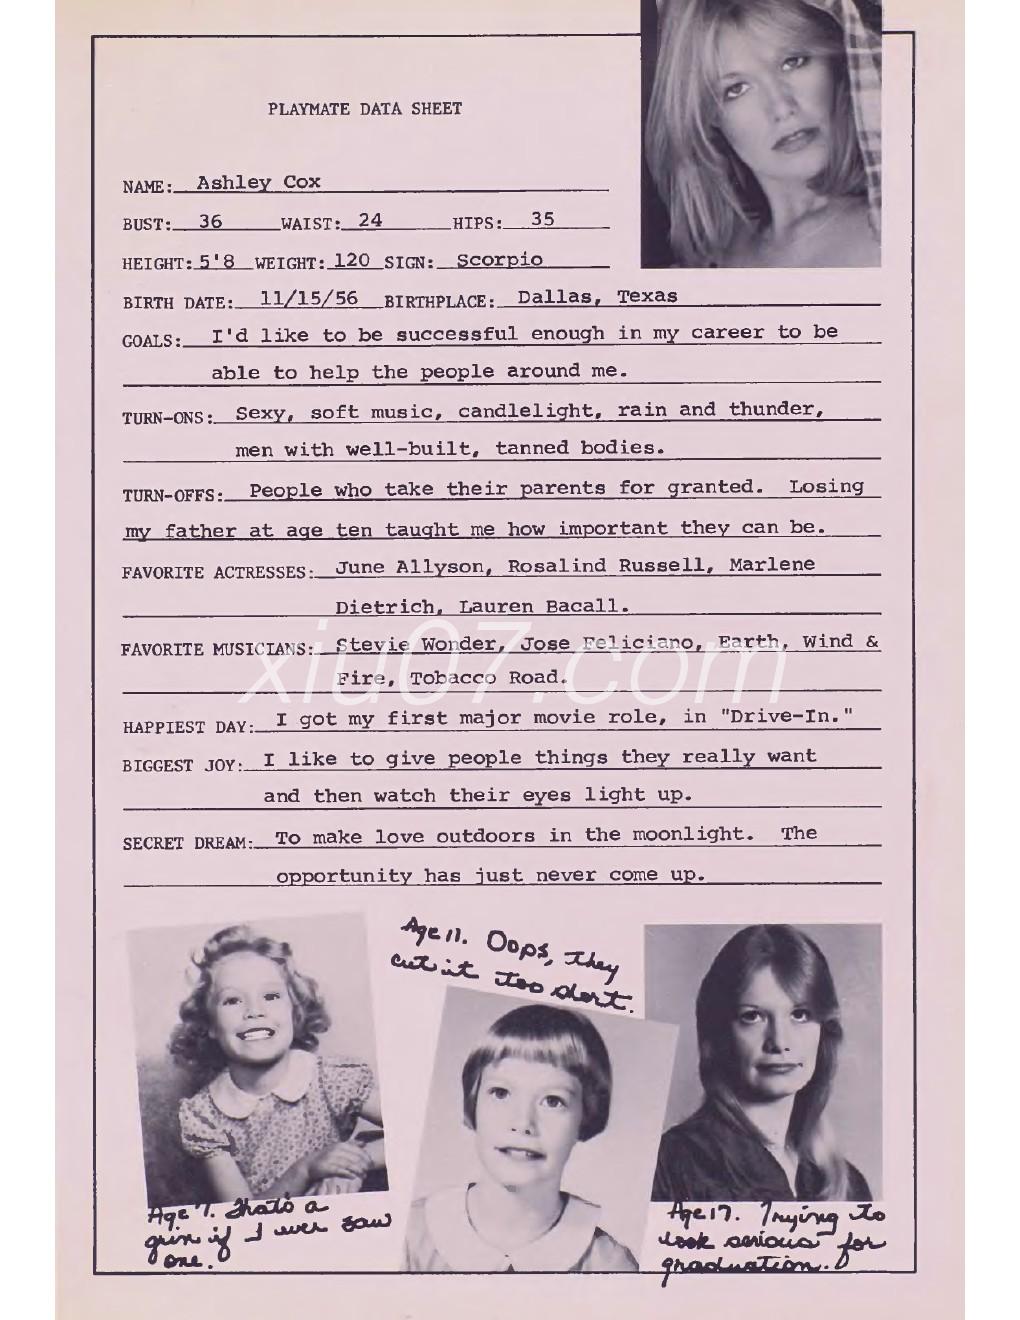 PLAYMATE DATA SHEET
NAME: Ashley Cox
BUST: 36 WAIST: 24 HIPS: 35
HEIGHT: 5'8 WEIGHT: 120 SIGN: Scorpio
BIRTH DATE: 11/15/56 BIRTHPLACE: Dallas, Texas
GOALS: I'd like to be successful enough in my career to be
able to help the people around me.
TURN-ONS: Sexy, soft music, candlelight, rain and thunder,
men with well-built, tanned bodies.
TURN-OFFS: People who take their parents for granted. Losing
my father at age ten taught me how important they can be.
FAVORITE ACTRESSES: June Allyson, Rosalind Russell, Marlene
Dietrich, Lauren Bacall.
FAVORITE MUSICIANS: Stevie Wonder, Jose Feliciano, Earth, Wind &
Fire, Tobacco Road.
xiu07.com
HAPPIEST DAY: I got my first major movie role, in "Drive-In."
BIGGEST JOY: I like to give people things they really want
and then watch their eyes light up.
SECRET DREAM: To make love outdoors in the moonlight. The
opportunity has just never come up.
Age 11. Oops, they
cut it too short.
Age 7. That's a
grin if I ever saw
one.
Age 17. Trying to
look serious for
graduation.